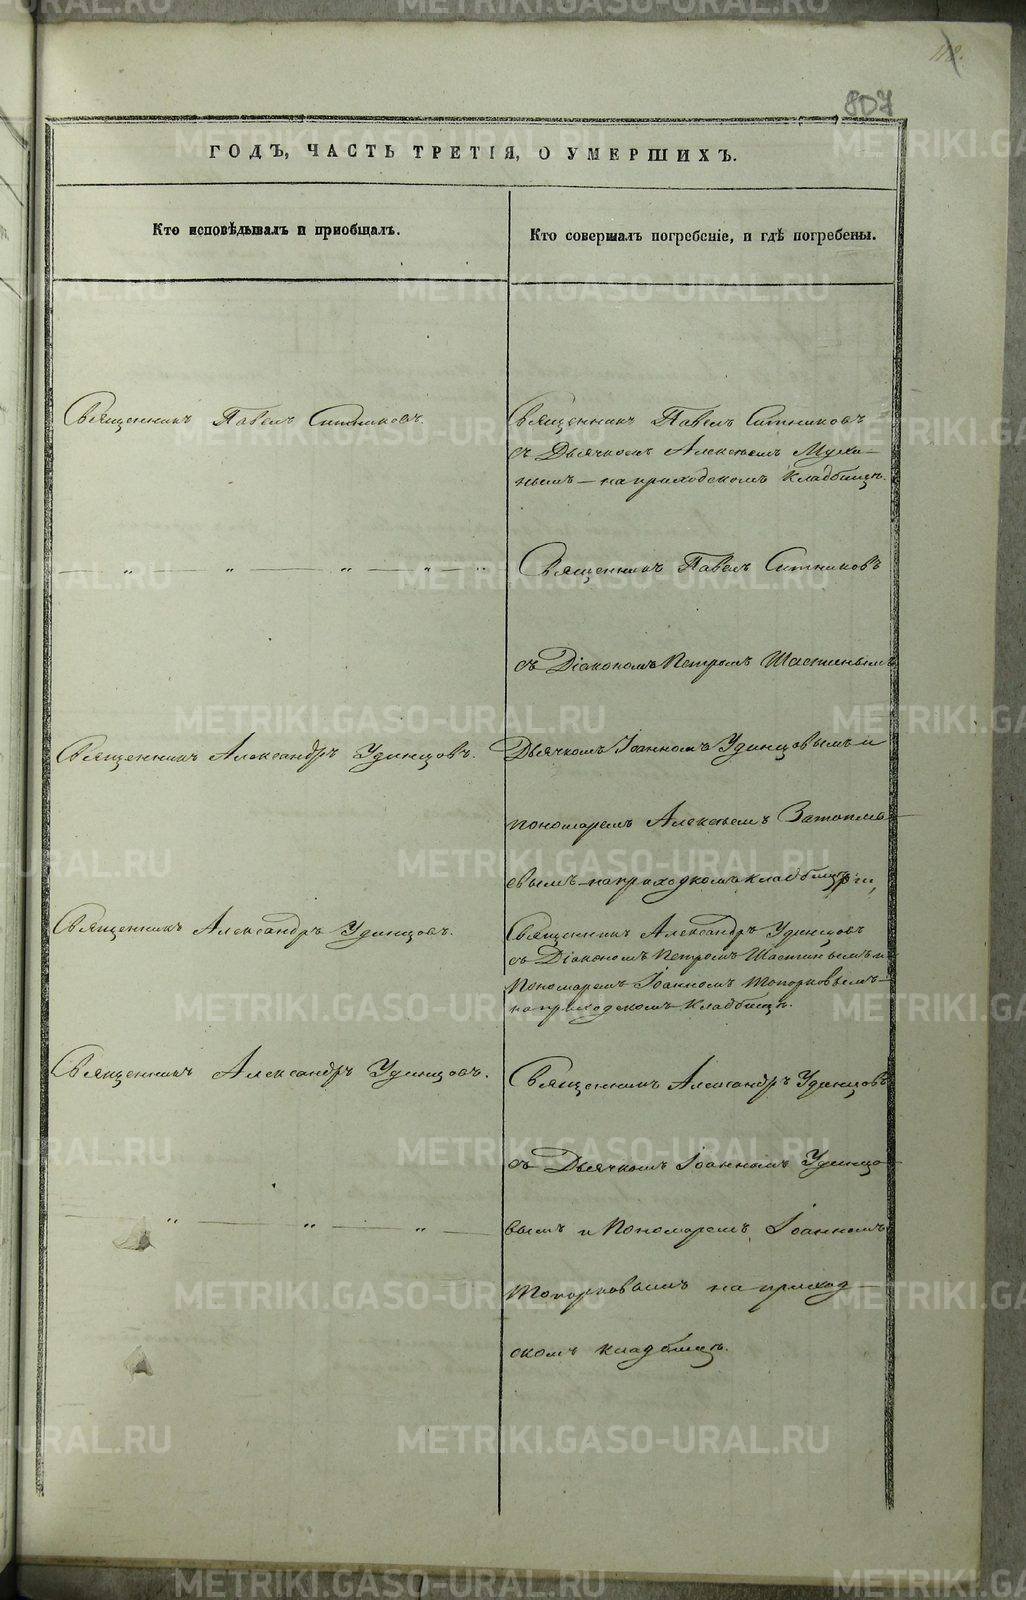 118.
807
ГОДЪ, ЧАСТЬ ТРЕТІЯ, О УМЕРШИХЪ.
Кто исповѣдывалъ и приобщалъ.
Кто совершалъ погребеніе, и гдѣ погребены.
Священникъ Павелъ Ситниковъ.
Священникъ Павелъ Ситниковъ
съ Дьячкомъ Алексѣемъ Муха-
нымъ - на приходскомъ кладбищѣ.
— " — " — " — " — "
Священникъ Павелъ Ситниковъ
съ Діакономъ Петромъ Шастинымъ
Священникъ Александръ Удинцовъ.
Дьячкомъ Іоанномъ Удинцовымъ и
пономаремъ Алексѣемъ
евымъ - на приходкомъ кладбищѣ
Священникъ Александръ Удинцовъ.
Священникъ Александръ Удинцовъ
съ Діакономъ Петромъ Шастинымъ и
Пономаремъ Іоанномъ Топорковымъ -
на приходскомъ кладбищѣ.
Священникъ Александръ Удинцовъ.
Священникъ Александръ Удинцовъ
съ Дьячкомъ Іоанномъ Удинцо-
— " — " — " —
вымъ и Пономаремъ Іоанномъ
Топорковымъ на приход-
скомъ кладбищѣ.
METRIKI.GASO-URAL.RU